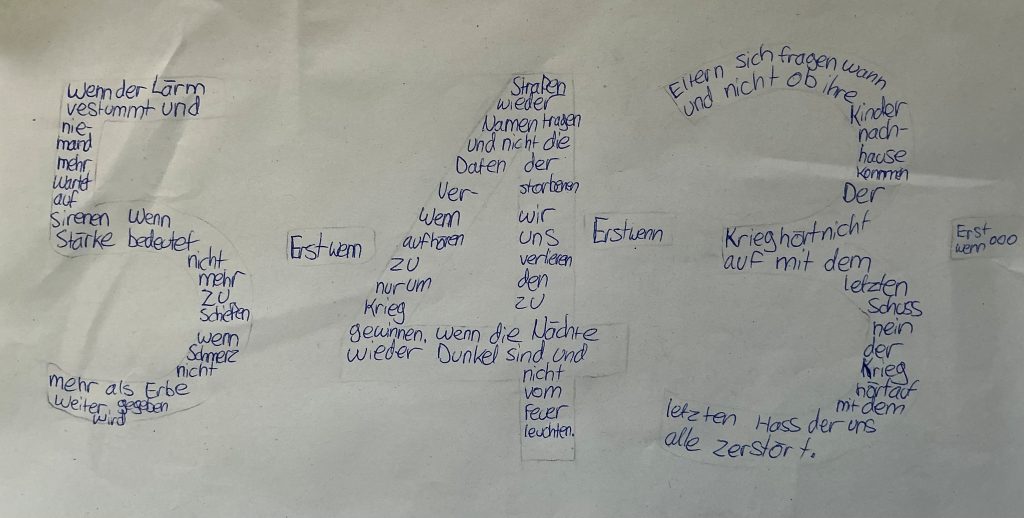 Wenn der Lärm
vestummt und
nie-
mand
mehr
wartet
auf
Sirenen Wenn
Stärke bedeutet
nicht
mehr
zu
Schießen
wenn
Schmerz
nicht
mehr als Erbe
weiter gegeben
wird
Erst wenn
Straßen
wieder
Namen tragen
und nicht die
Daten der
Ver- storbenen
Wenn wir
aufhören uns
zu verlieren
nur um den
Krieg zu
gewinnen. wenn die Nächte
wieder Dunkel sind und
nicht
vom
Feuer
leuchten.
Erst wenn
Eltern sich fragen wann
und nicht ob ihre
Kinder
nach-
hause
kommen
Der
Krieg hört nicht
auf mit dem
letzten
Schuss
nein
der
Krieg
hört auf
mit dem
letzten Hass der uns
alle zerstört.
Erst
wenn ooo